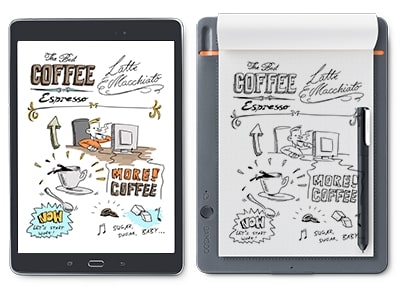 The Best
COFFEE
Latte
& Macchiato
Espresso
MORE!
COFFEE
NOW
LET'S START
WORK!
SUGAR,
SUGAR, BABY...
The Best
COFFEE
Latte
& Macchiato
Espresso
MORE!
COFFEE
NOW
LET'S START
WORK!
SUGAR,
SUGAR, BABY...